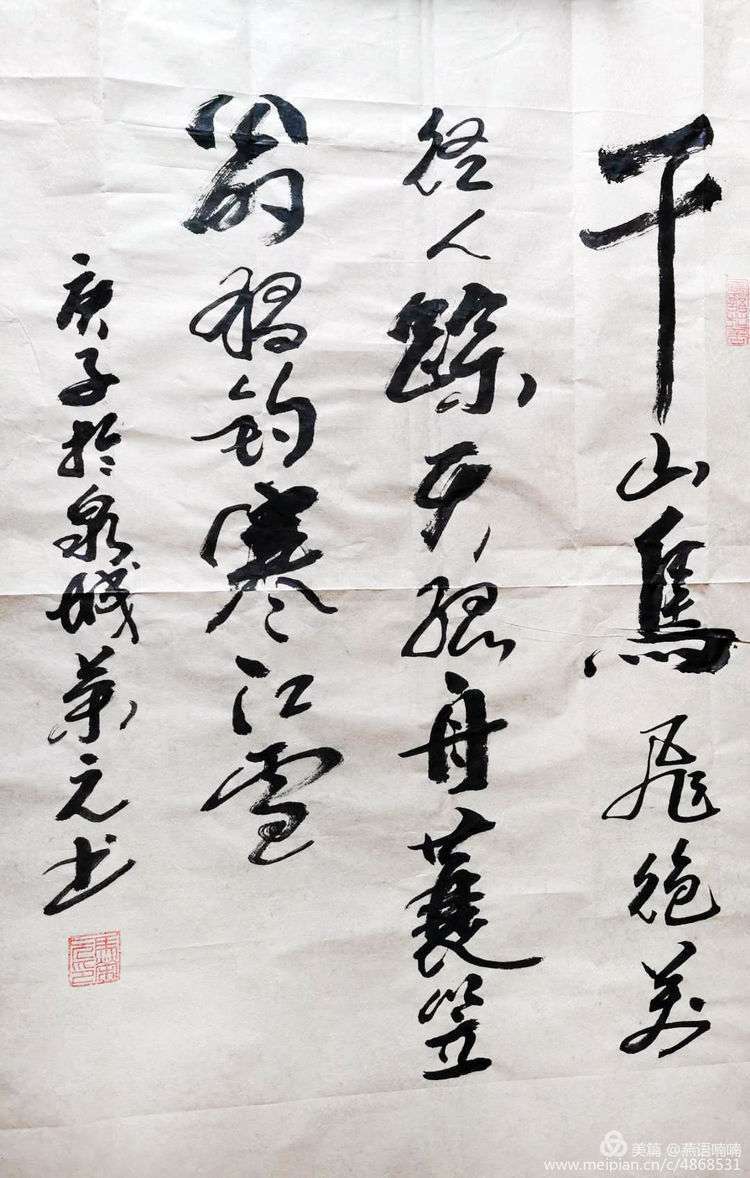 千山鳥飛絶萬
徑人踪灭孤舟蓑笠
翁獨釣寒江雪
庚子於泉城荣元书
美篇 @燕语喃喃
www.meipian.cn/c/4868531